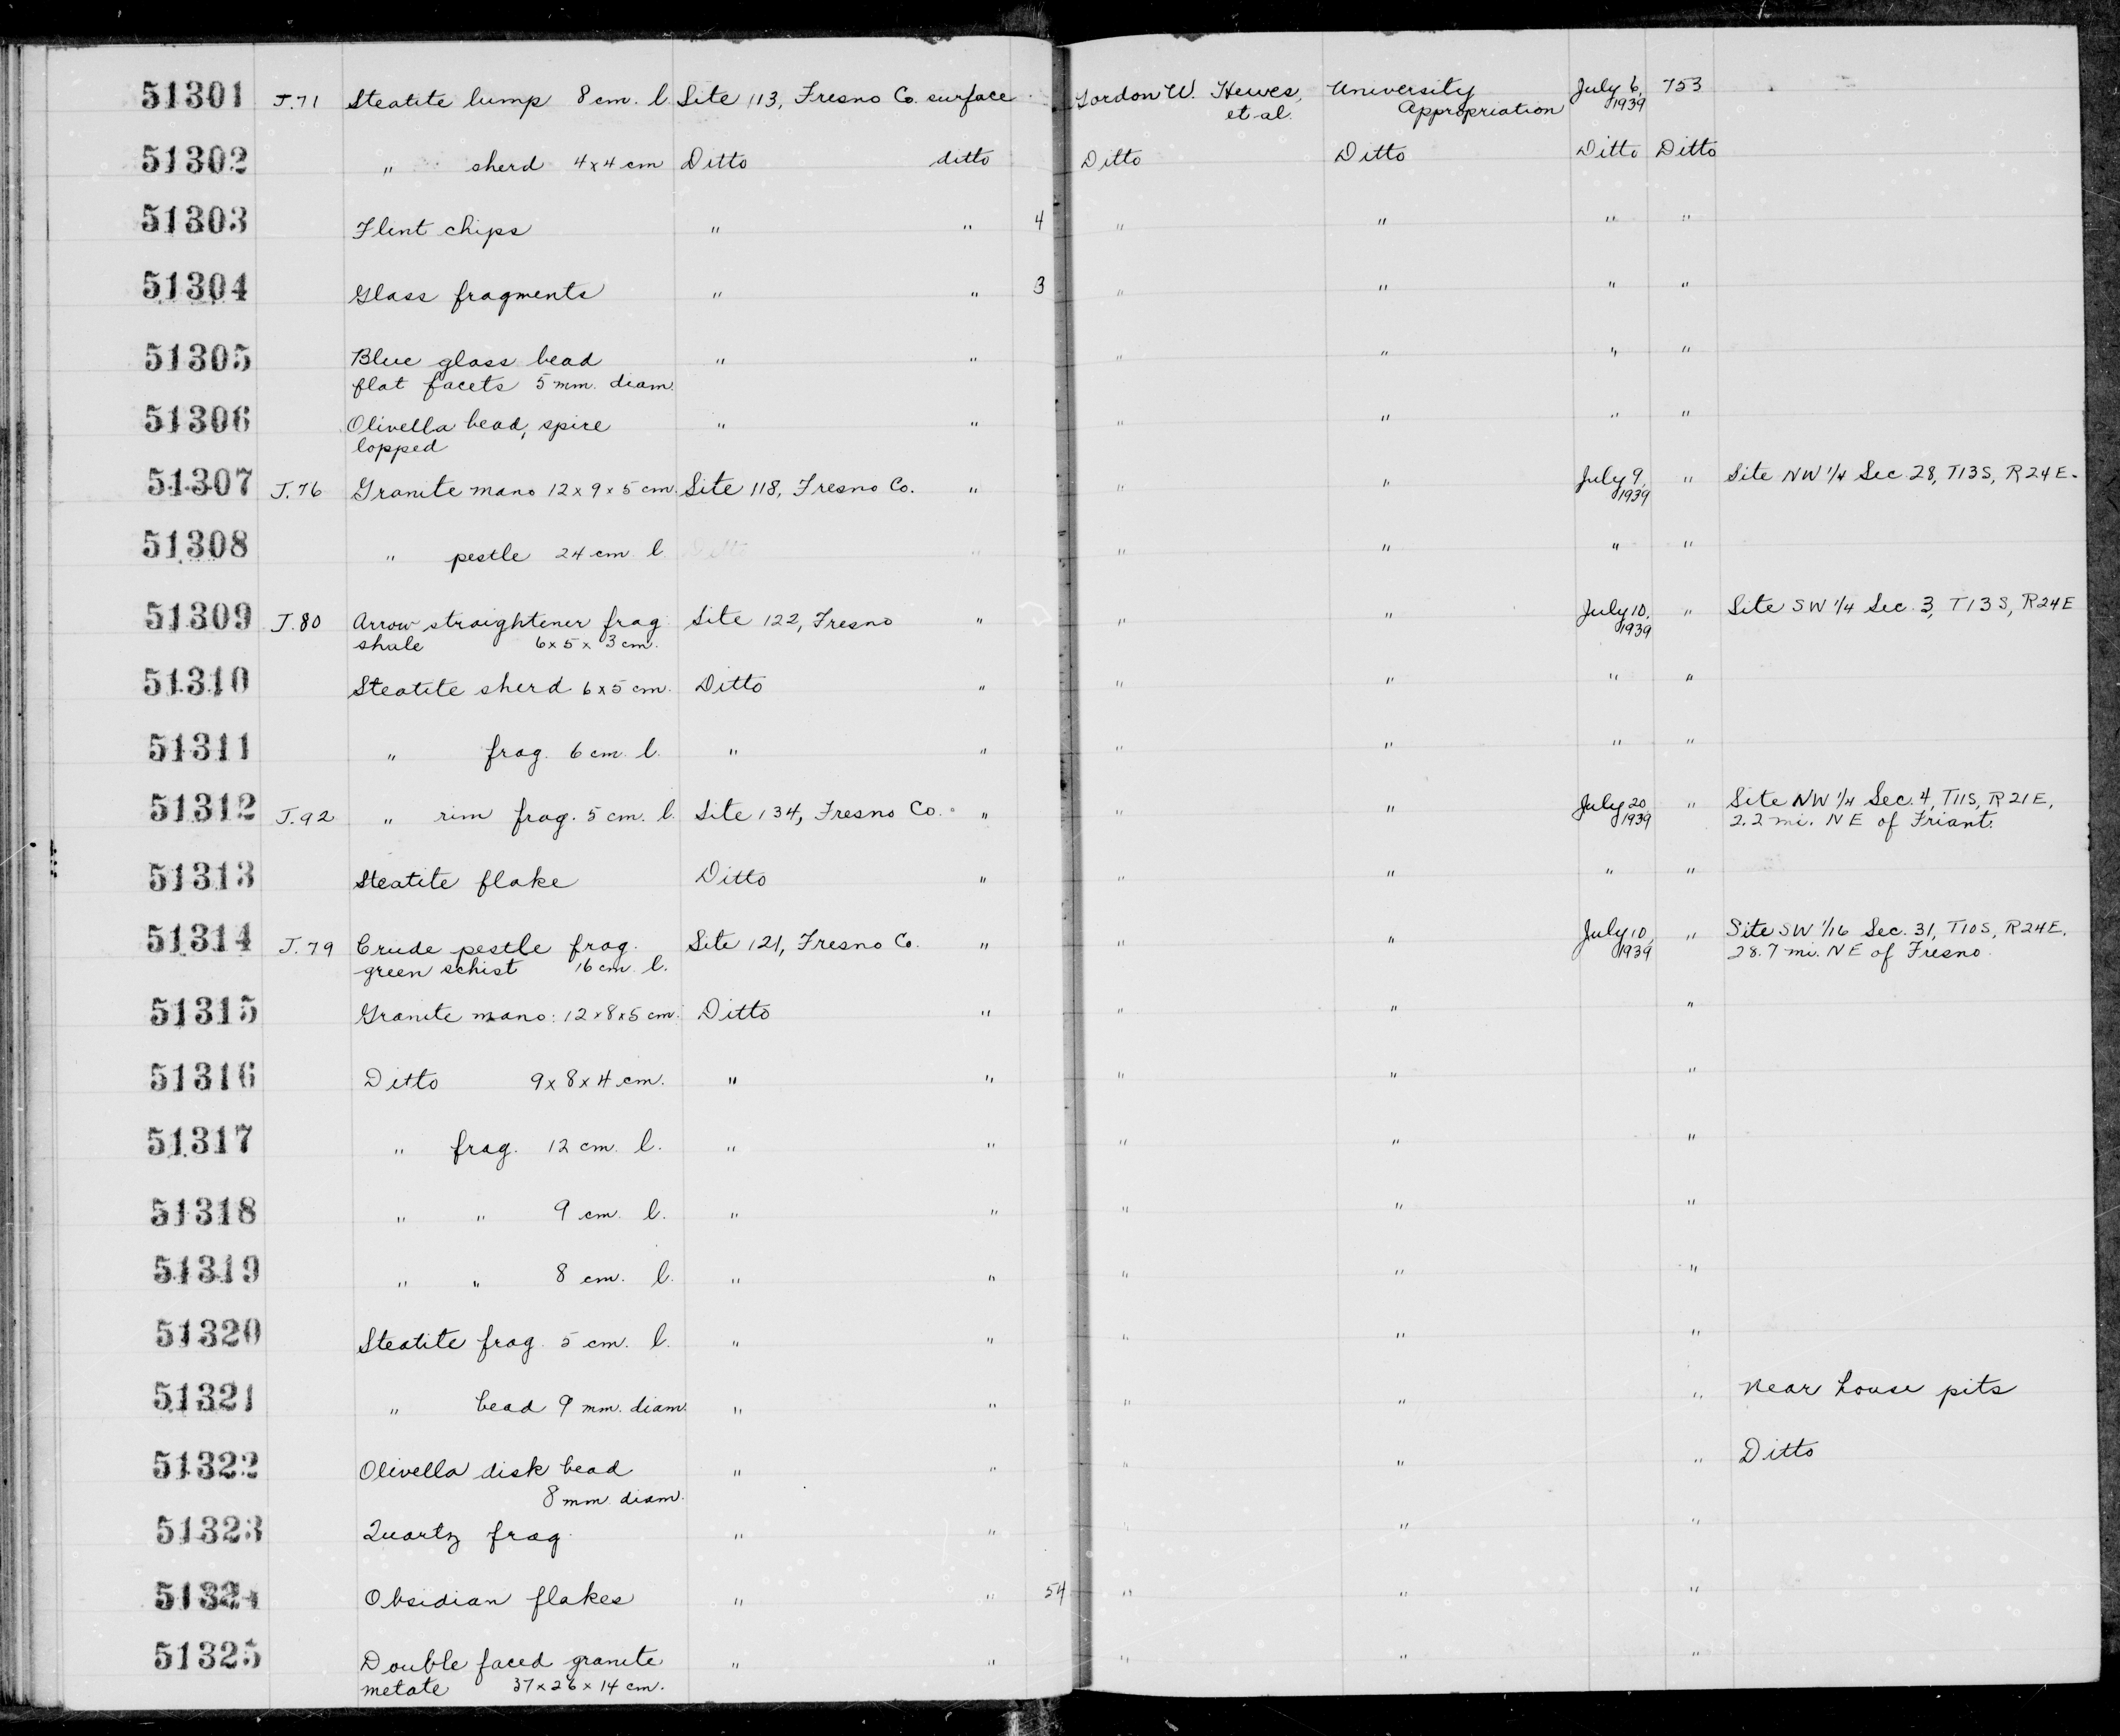 51301 J.71 Steatite lump 8 cm. l. Site 113, Fresno Co. surface Gordon W. Hewes, University July 6, 753
et al. Appropriation 1939
51302 " sherd 4x4 cm Ditto ditto Ditto Ditto Ditto Ditto
51303 Flint chips " " 4 " " " "
51304 Glass fragments " " 3 " " " "
51305 Blue glass bead " " " " " "
flat facets 5 mm. diam.
51306 Olivella bead, spire " " " " " "
lopped
51307 J.76 Granite mano 12x9x5 cm. Site 118, Fresno Co. " " " July 9, " Site NW 1/4 Sec. 28, T13S, R24E.
1939
51308 " pestle 24 cm l. Ditto " " " " "
51309 J.80 Arrow straightener frag Site 122, Fresno " " " July 10, " Site SW 1/4 Sec. 3, T13S, R24E
shale 6x5x3 cm. 1939
51310 Steatite sherd 6x5 cm. Ditto " " " " "
51311 " frag. 6 cm. l. " " " " " "
51312 J.92 " rim frag. 5 cm. l. Site 134, Fresno Co. " " " July 20, " Site NW 1/4 Sec. 4, T11S, R21E,
1939 2.2 mi. NE of Friant.
51313 Steatite flake Ditto " " " " "
51314 J.79 Crude pestle frag. Site 121, Fresno Co. " " " July 10, " Site SW 1/16 Sec. 31, T10S, R24E.
green schist 16 cm. l. 1939 28.7 mi. NE of Fresno.
51315 Granite mano: 12x8x5 cm. Ditto " " " "
51316 Ditto 9x8x4 cm. " " " " "
51317 " frag. 12 cm. l. " " " " "
51318 " " 9 cm. l. " " " " "
51319 " " 8 cm. l. " " " " "
51320 Steatite frag. 5 cm. l. " " " " "
51321 " bead 9 mm. diam. " " " " " Near house pits
51322 Olivella disk bead " " " " " Ditto
8 mm. diam.
51323 Quartz frag. " " " " "
51324 Obsidian flakes " " 54 " " "
51325 Double faced granite " " " " "
metate 37x26x14 cm.